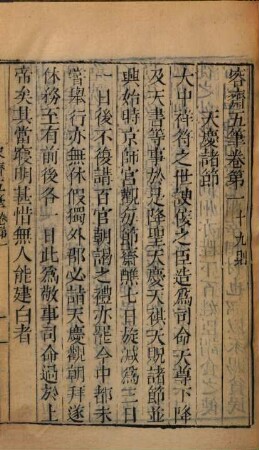 容齋五筆卷第一十九則
天慶諸節
大中祥符之世諛佞之臣造為司命天尊下降
及天書等事於是降聖天慶天祺天貺諸節並
興始時京師宮觀每節齋醮七日旋減為三日
一日後不復講百官朝謁之禮亦罷今中都未
嘗舉行亦無休假獨外郡必詣天慶觀朝拜遂
休務至有前後各一日此為敬事司命過於上
帝矣其當寢明甚惜無人能建白者